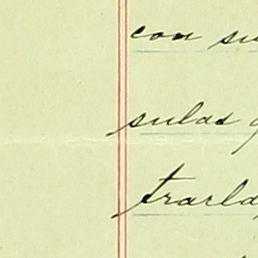 con su
sulas q
trarla